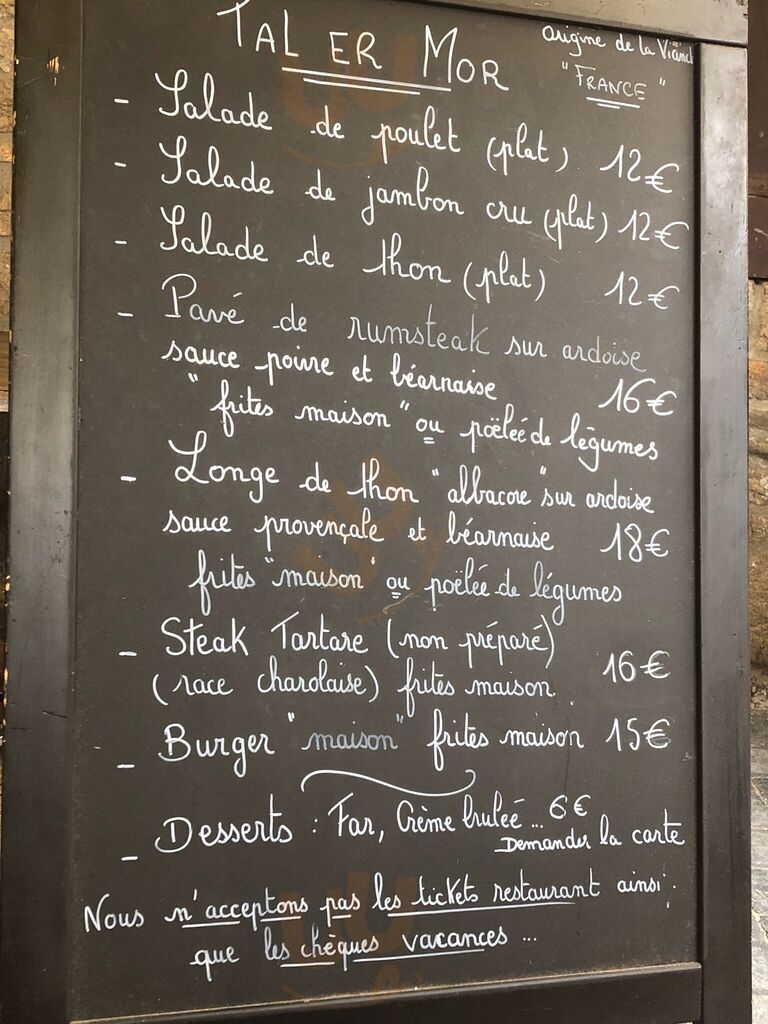 TAL ER MOR
Origine de la Viand
"FRANCE"
- Salade de poulet (plat) 12€
- Salade de jambon cru (plat) 12€
- Salade de thon (plat) 12€
- Pavé de rumsteak sur ardoise
sauce poivre et béarnaise 16€
"frites maison" ou poëleé de légumes
- Longe de thon "albacore" sur ardoise
sauce provençale et béarnaise 18€
frites "maison" ou poëleé de légumes
- Steak Tartare (non préparé)
(race charolaise) frites maison 16€
- Burger "maison" frites maison 15€
- Desserts : Far, Crème bruleé... 6€
Demander la carte
Nous n'acceptons pas les tickets restaurant ainsi
que les chèques vacances ...